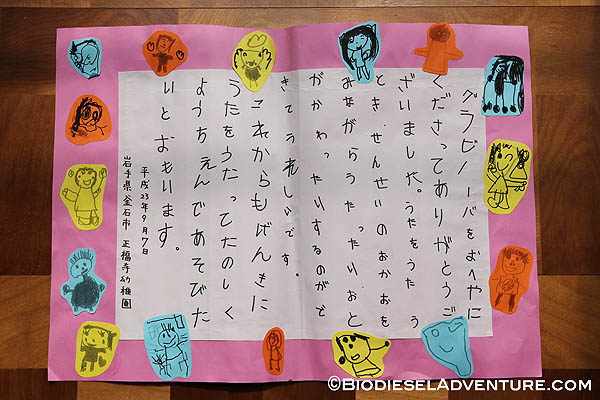 グラビノーバをおへやに
くださってありがとうご
ざいました。うたをうたう
とき、せんせいのおかおを
みながらうたったりおと
がかわったりするのがで
きてうれしいです。
これからもげんきに
うたをうたってたのしく
ようちえんであそびた
いとおもいます。
平成23年9月7日
岩手県釜石市 正福寺幼稚園
©BIODIESELADVENTURE.COM